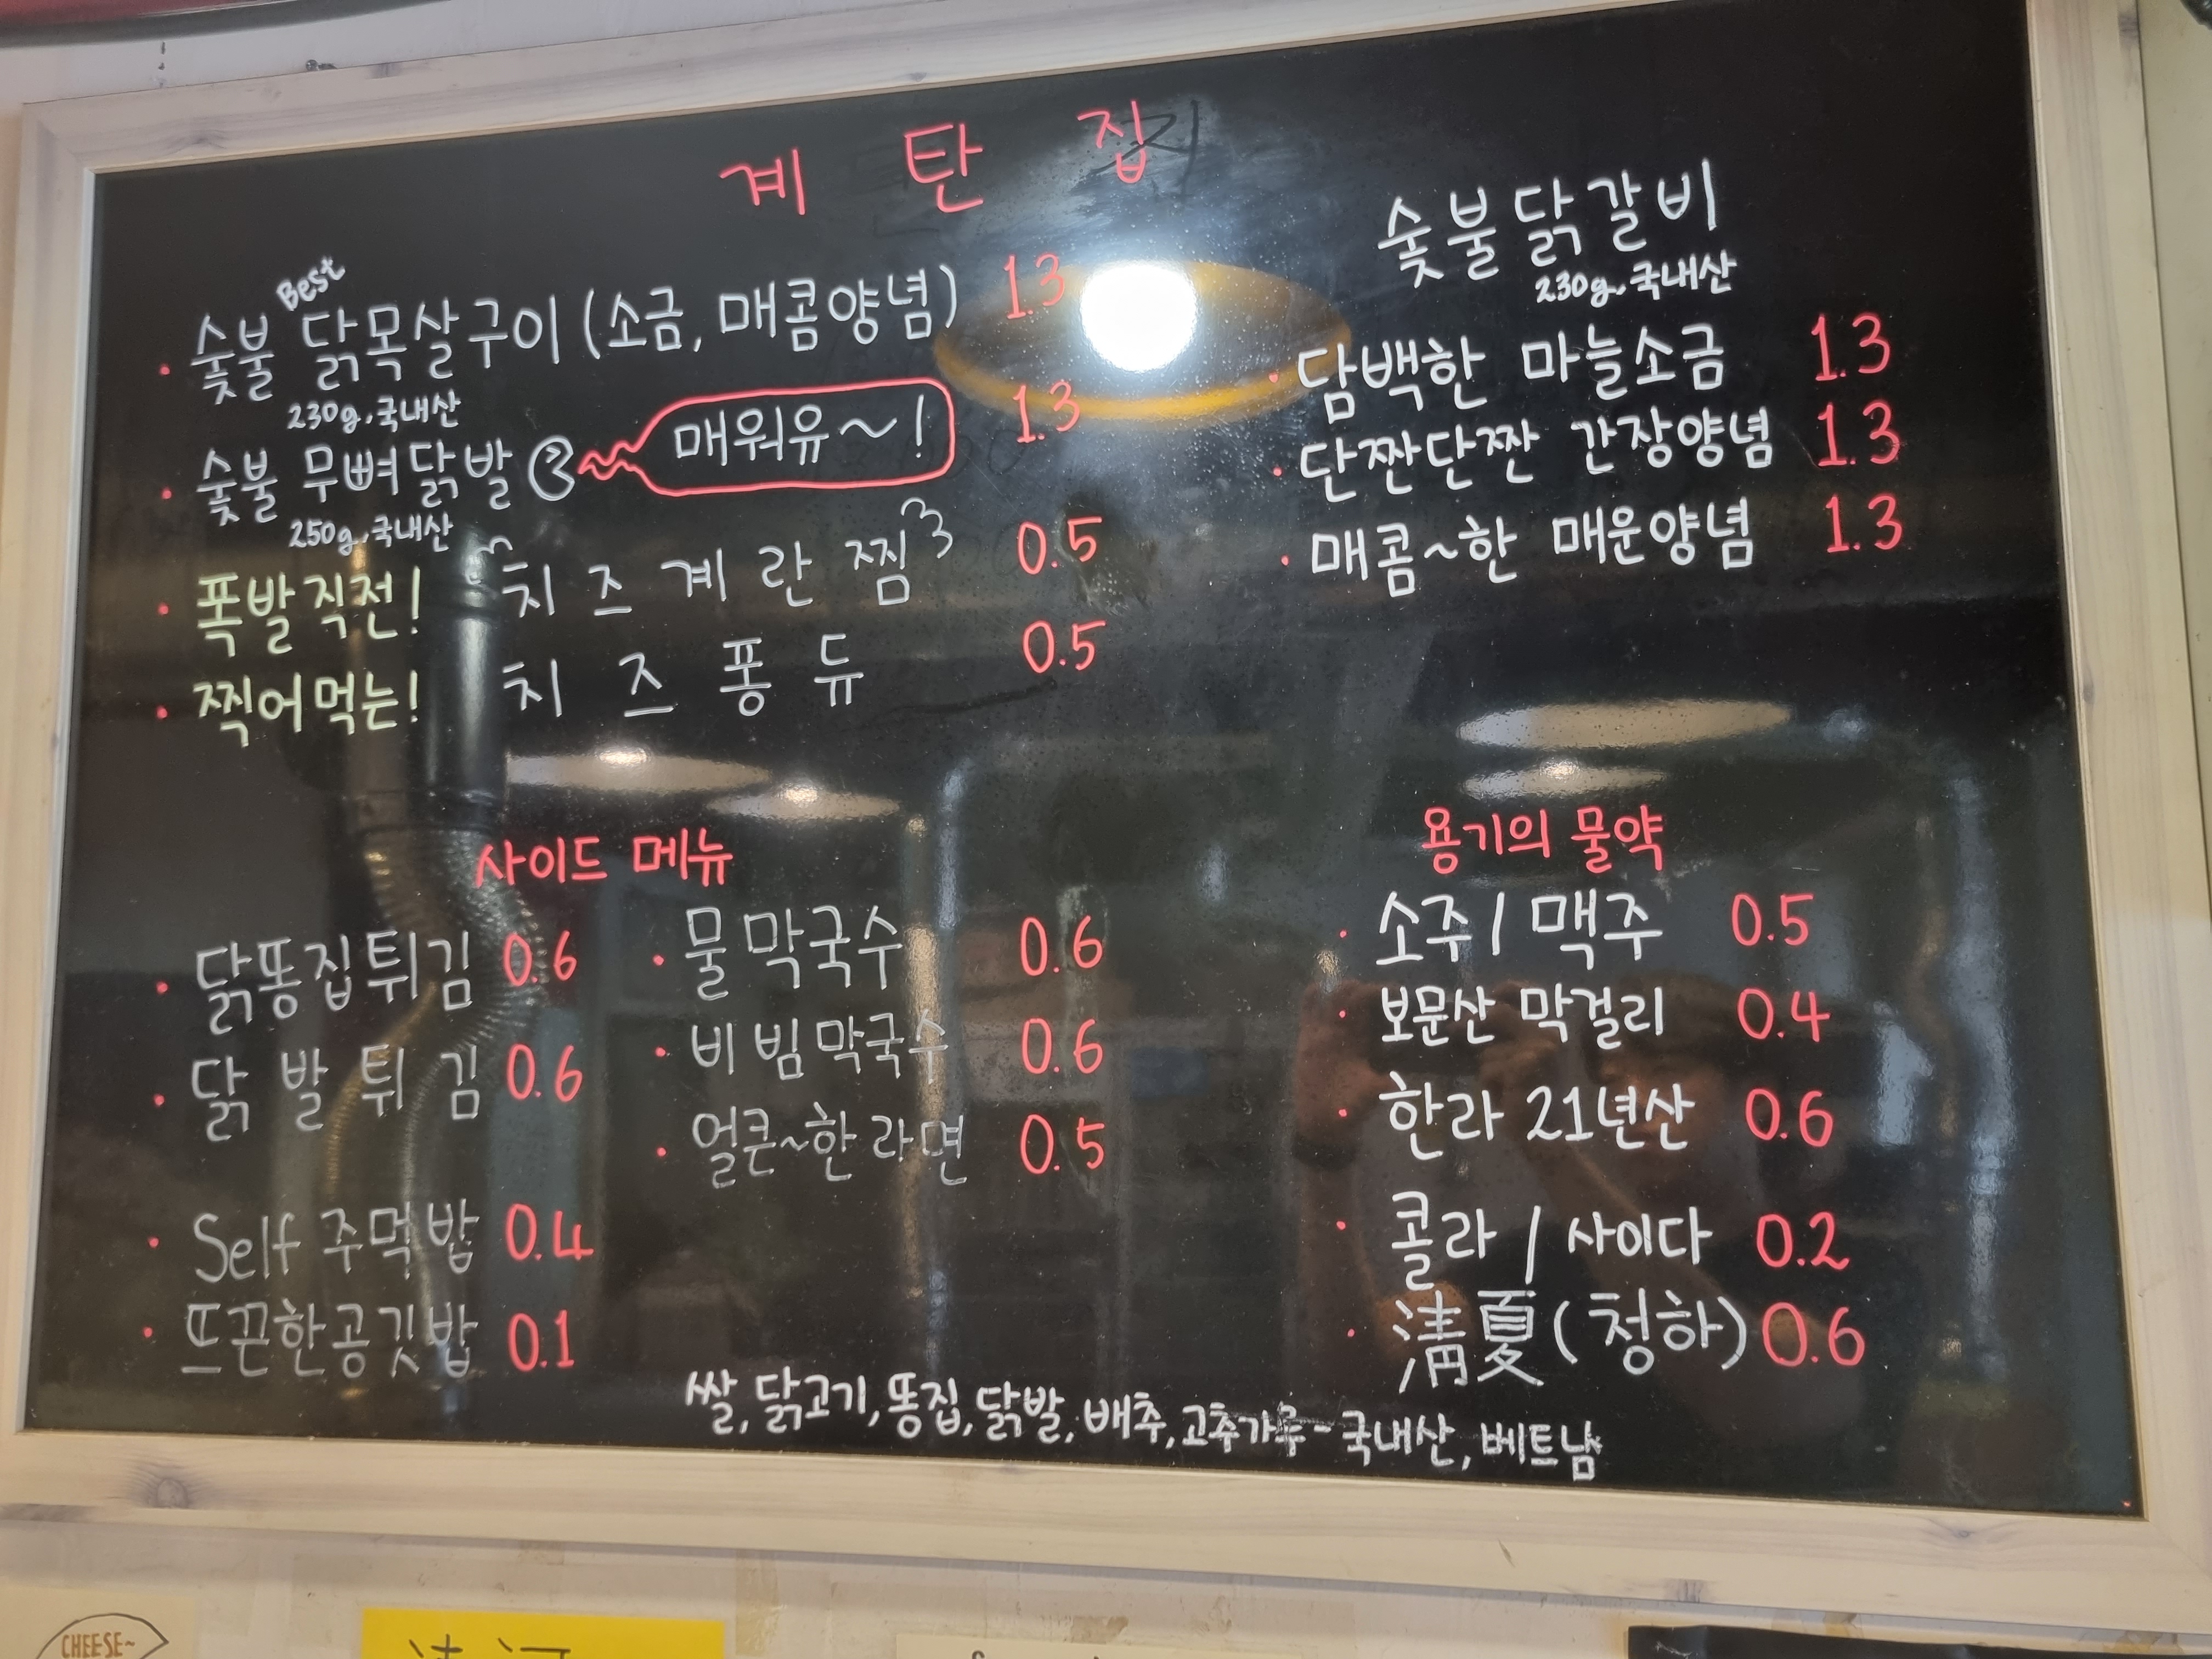 계탄집
Best
숯불 닭목살구이 (소금, 매콤양념) 1.3
230g.국내산
숯불 무뼈닭발 매워유~! 1.3
250g.국내산
폭발직전! 치즈계란찜 0.5
찍어먹는! 치즈퐁듀 0.5
숯불닭갈비
230g.국내산
담백한 마늘소금 1.3
단짠단짠 간장양념 1.3
매콤~한 매운양념 1.3
사이드 메뉴
닭똥집튀김 0.6
닭발튀김 0.6
Self 주먹밥 0.4
뜨끈한공깃밥 0.1
물막국수 0.6
비빔막국수 0.6
얼큰~한라면 0.5
용기의 물약
소주/맥주 0.5
보문산 막걸리 0.4
한라 21년산 0.6
콜라/사이다 0.2
淸夏(청하) 0.6
쌀, 닭고기, 똥집, 닭발, 배추, 고추가루-국내산, 베트남
CHEESE~